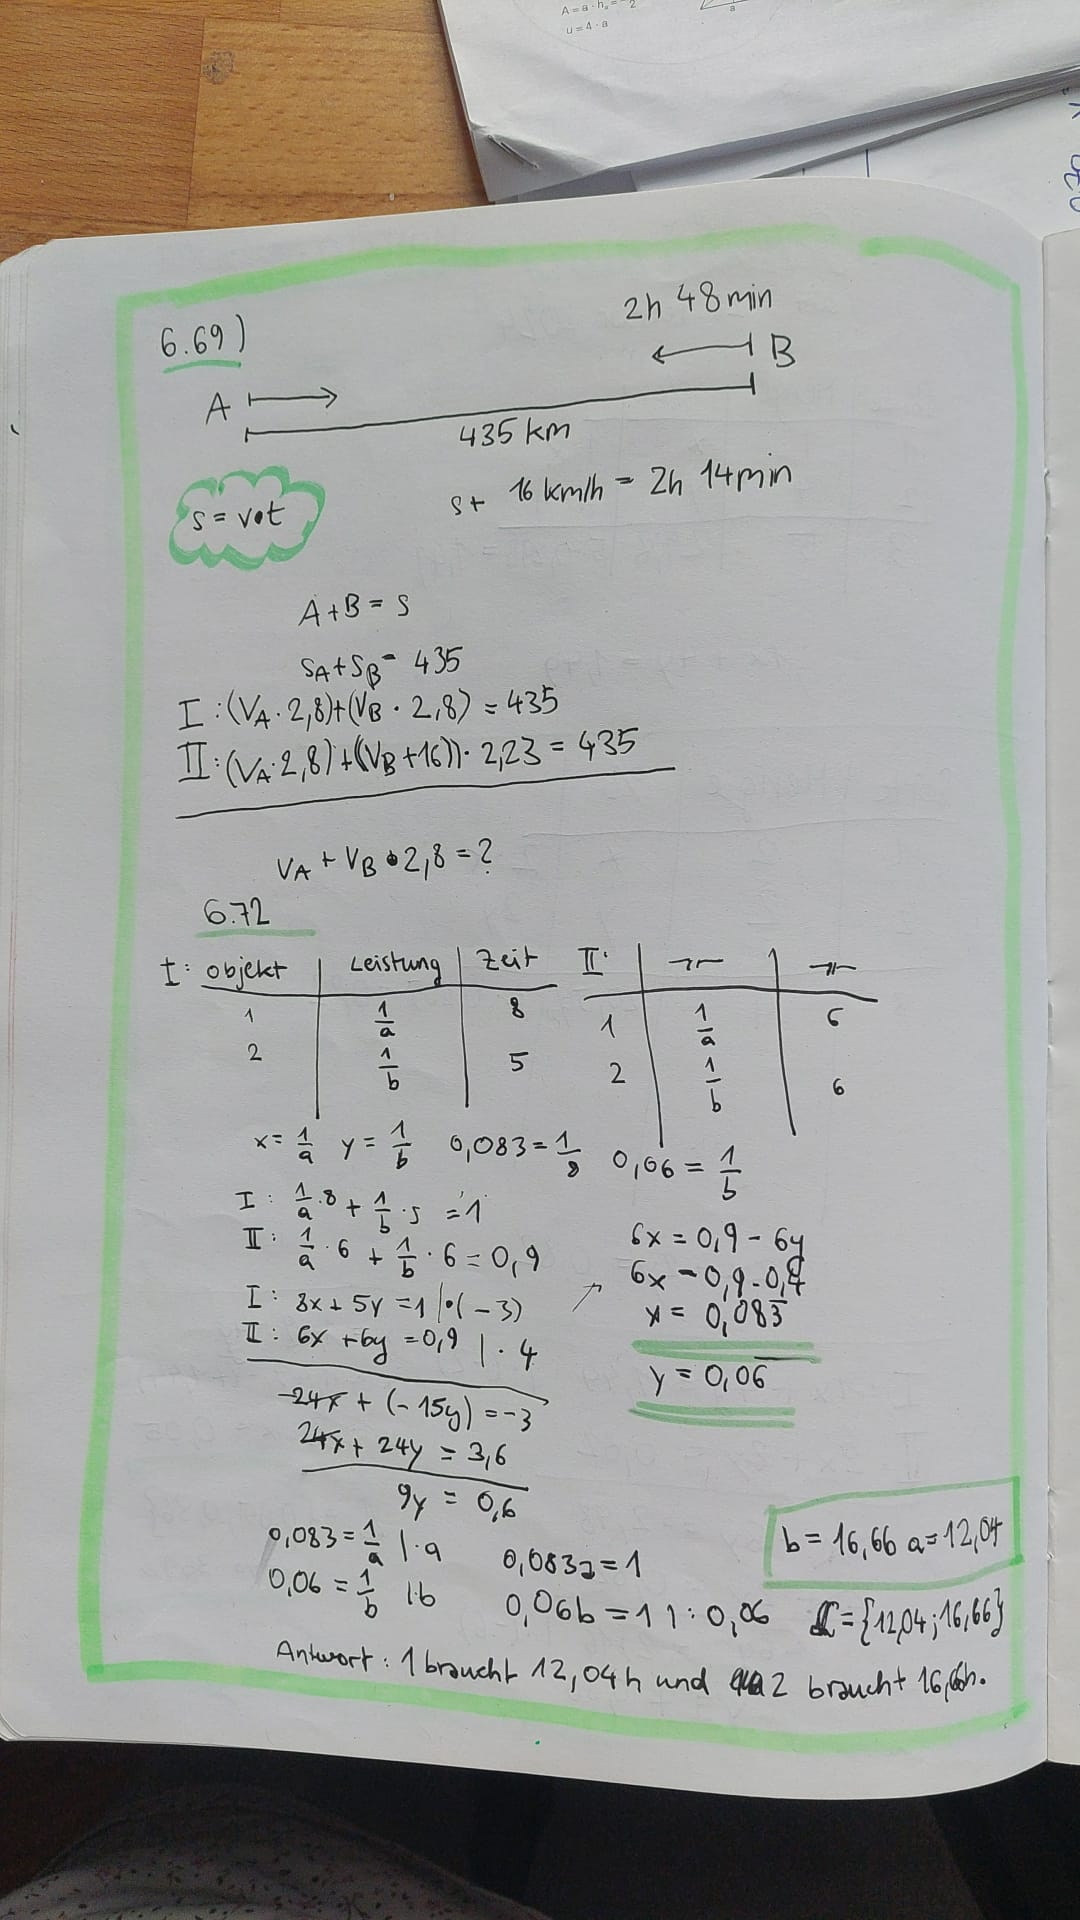 u = 4 · a
6.69)
2h 48min
A
B
435 km
s = v•t
s+ 16 km/h = 2h 14min
A + B = s
sA + sB = 435
I : (VA · 2,8) + (VB · 2,8) = 435
II: (VA · 2,8) + ((VB + 16)) · 2,23 = 435
VA + VB • 2,8 = ?
6.72
I: Objekt | Leistung | Zeit
1 | 1/a | 8
2 | 1/b | 5
II:
1 | 1/a | 6
2 | 1/b | 6
x = 1/a y = 1/b 0,083 = 1/8 0,06 = 1/b
I : 1/a · 8 + 1/b · 5 = 1
II : 1/a · 6 + 1/b · 6 = 0,9
I : 8x + 5y = 1 | • (-3)
II : 6x + 6y = 0,9 | · 4
-24x + (-15y) = -3
24x + 24y = 3,6
9y = 0,6
6x = 0,9 - 6y
6x = 0,9 - 0,4
x = 0,083
y = 0,06
0,083 = 1/a | · a
0,06 = 1/b | · b
0,083a = 1
0,06b = 1 | : 0,06
b = 16,66 a = 12,04
L = {12,04; 16,66}
Antwort : 1 braucht 12,04h und 2 braucht 16,66h.